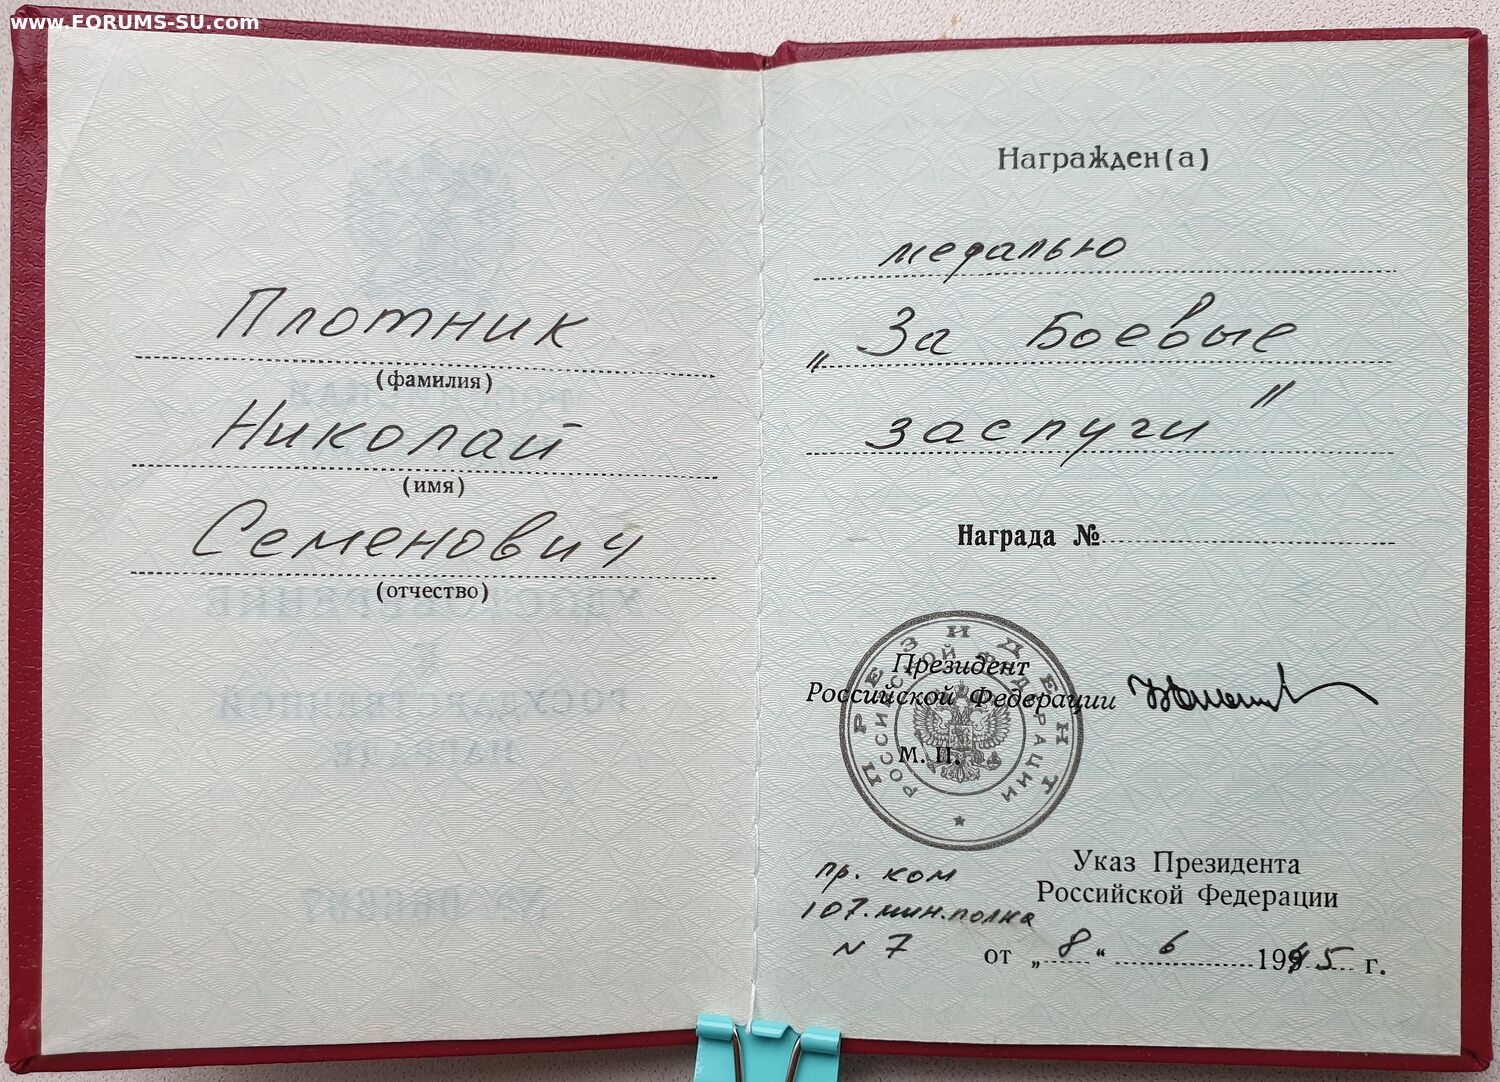 www.FORUMS-SU.com
Плотник
(фамилия)
Николай
(имя)
Семенович
(отчество)
Награжден(а)
медалью
„За Боевые
заслуги"
Награда №
ПРЕЗИДЕНТ
РОССИЙСКОЙ ФЕДЕРАЦИИ
Президент
Российской Федерации
М. П.
Указ Президента
Российской Федерации
пр. ком
107.мин.полка
N 7
от „8“ 6 1945 г.